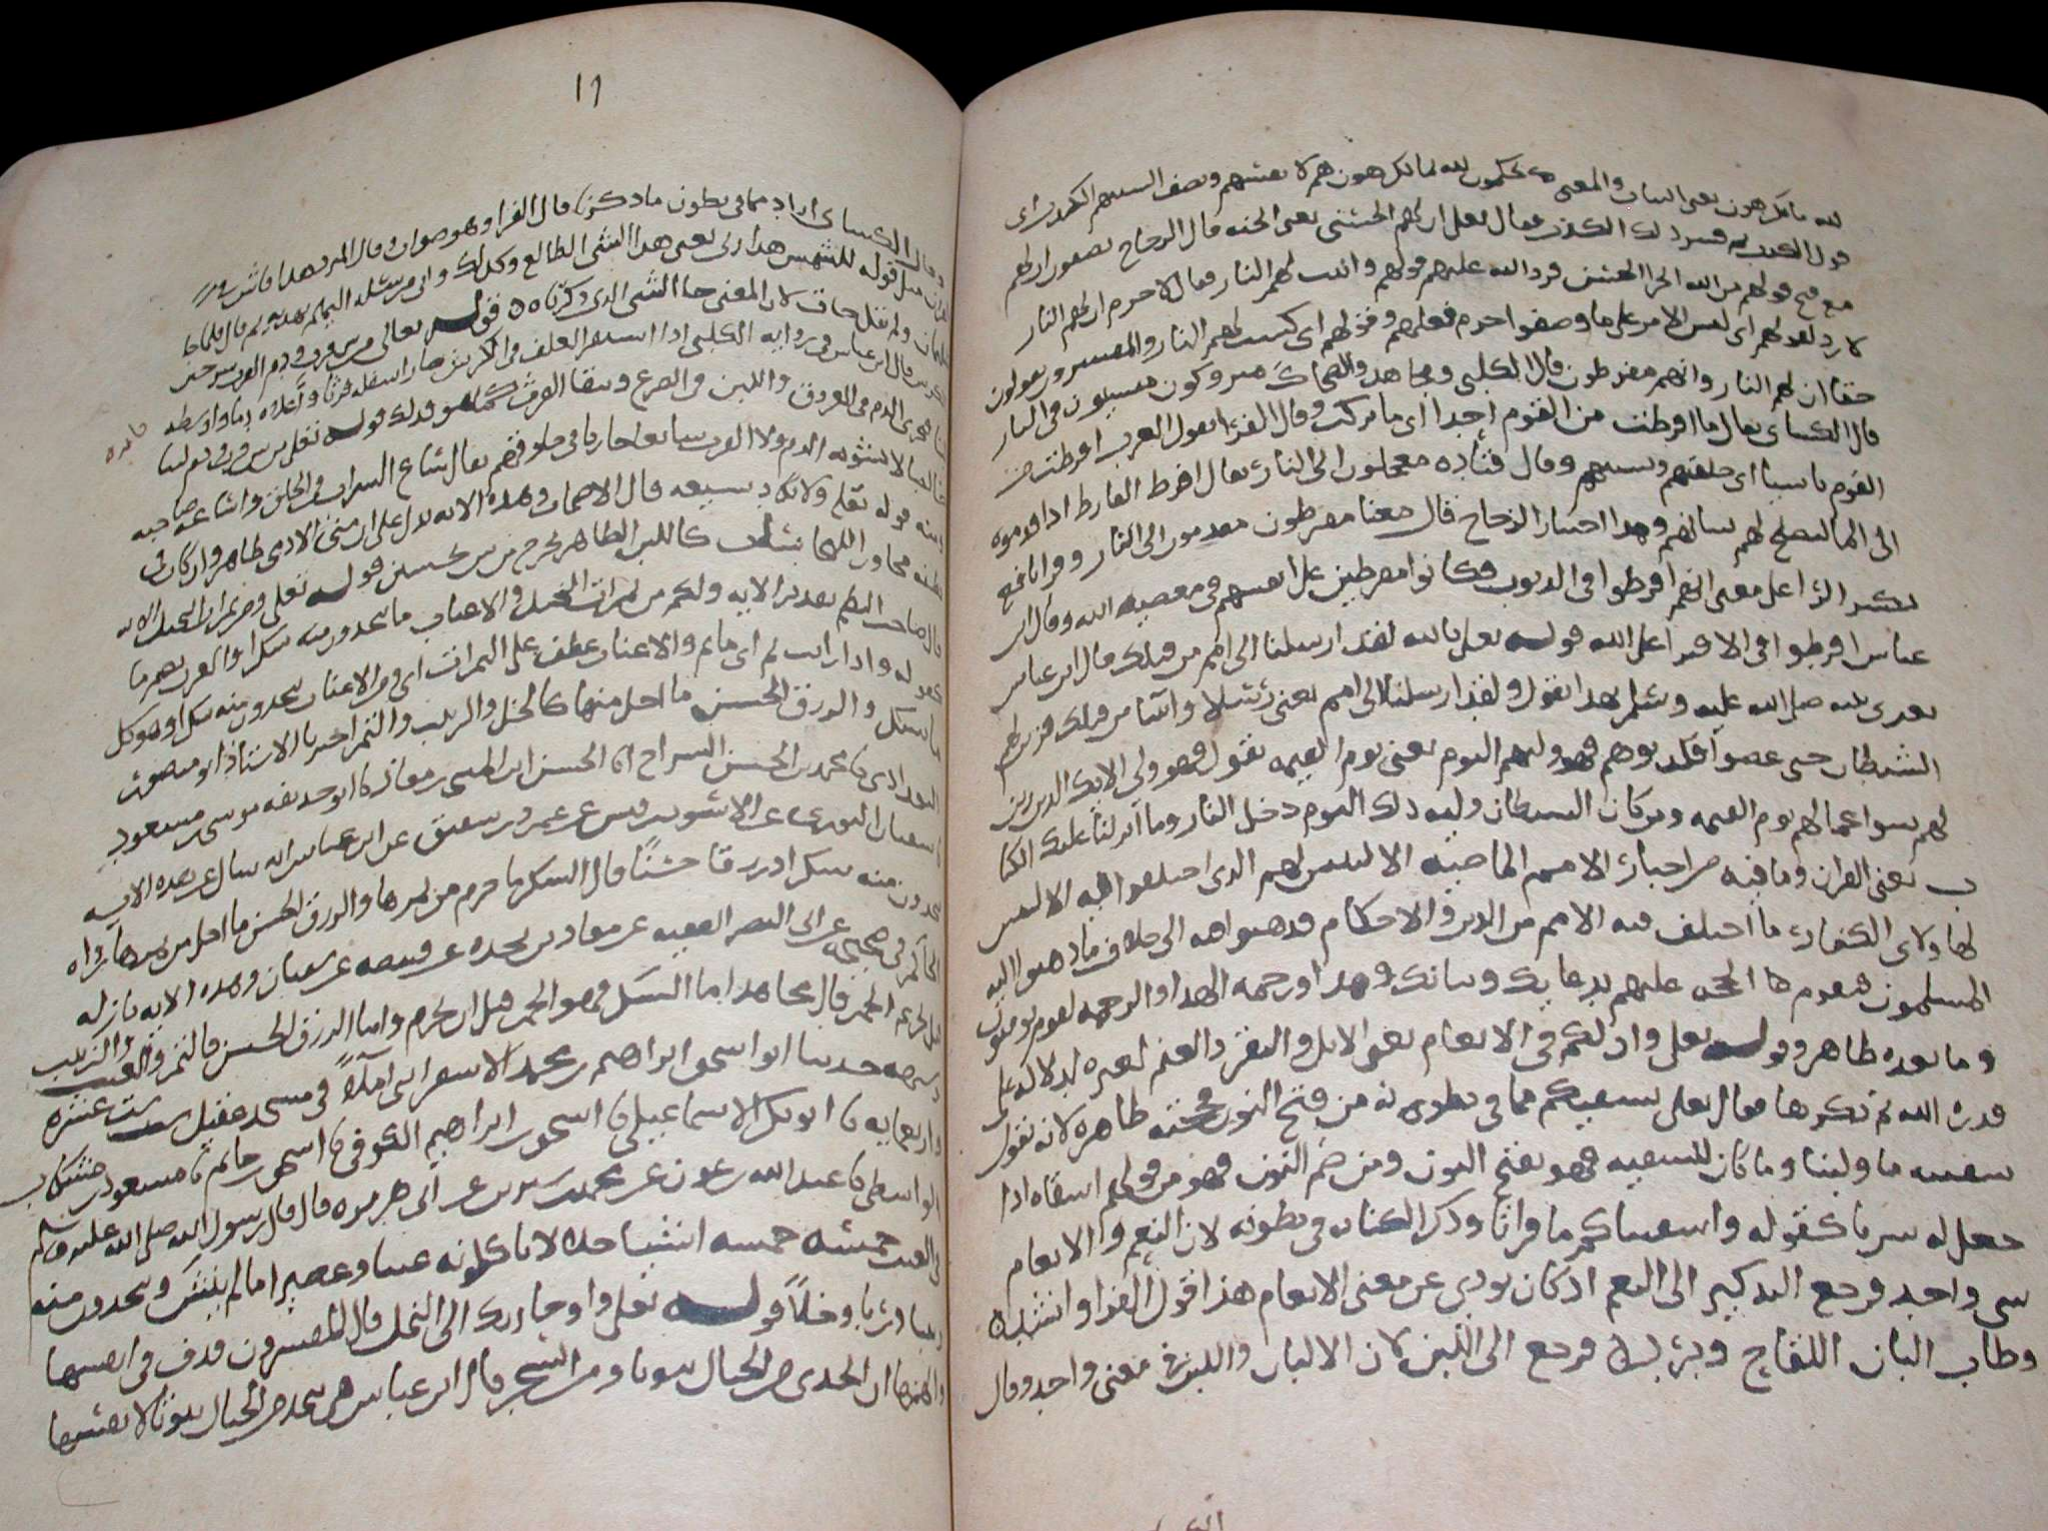 لله ما يكرهون يعنى البنات والمعنى يحكمون لله بما يكرهون هم لانفسهم وتصف السنتهم الكذب اى
قول الكذب ثم فسر ذلك الكذب فقال تعلى ان لهم الحسنى يعنى الجنه قال الزجاج يصفون ان لهم
مع قبح قولهم من الله الجزا الحسن فرد الله عليهم قولهم واثبت لهم النار فقال لا جرم ان لهم النار
لا رد لقولهم اى ليس الامر على ما وصفوا جرم فعلهم وقولهم اى كسب لهم النار والمفسرون يقولون
حقا ان لهم النار وانهم مفرطون قال الكلبى ومجاهد والضحاك متروكون منسيون فى النار
قال الكساى يقال ما افرطت من القوم احدا اى ما تركت وقال الفرا تقول العرب افرطت من
القوم ناسا اى خلفتهم ونسيتهم وقال قتاده معجلون الى النار يقال افرط الفارط اذا قدموه
الى الما ليصلح لهم شانهم وهذا اختيار الزجاج قال معنا مفرطون مقدمون الى النار وقرا نافع
بكسر الرا على معنى انهم افرطوا فى الذنوب فكانوا مفرطين على انفسهم فى معصيه الله وقال ابن
عباس افرطوا فى الافترا على الله قوله تعلى تالله لقد ارسلنا الى امم من قبلك قال ابن عباس
يعزى نبيه صلى الله عليه وسلم بهذا يقول ولقد ارسلنا الى امم يعنى رسلا وانبيا من قبلك فزين لهم
الشيطان حتى عصوا فكذبوهم فهو وليهم اليوم يعنى يوم القيمه يقول فهو ولى الايك الذين زين
لهم سوا اعمالهم يوم القيمه ومن كان الشيطان وليه ذلك اليوم دخل النار وما انزلنا عليك الكتا
ب يعنى القران وما فيه من اخبار الامم الماضيه الا لتبين لهم الذى اختلفوا فيه الا لتبين
لهاولاى الكفار ما اختلف فيه الامم من الدين والاحكام فذهبوا هم الى خلاف ما ذهب اليه
المسلمون فتقوم هنا الحجه عليهم بدعايك وبيانك وهدا ورحمه الهدا والرحمه لقوم يومنون
وما بعده ظاهر وقوله تعلى وان لكم فى الانعام يعنى الابل والبقر والغنم لعبره لدلاله على
قدره الله ثم ذكرها فقال تعلى نسقيكم مما فى بطونه من فتح النون فحجته ظاهره لانه تقول
سقيته ما ولبنا وما كان للسقيه فهو بفتح النون ومن ضم النون فهو من قولهم اسقاه اذا
جعل له شربا كقوله واسقيناكم ما فراتا وذكر الكنايه فى بطونه لان النعم والانعام
شى واحد فرجع التذكير الى النعم اذ كان يودى عن معنى الانعام هذا قول الفرا وانشد
وطاب البان اللقاح وبرد فرجع الى اللبن لان الالبان واللبن فى معنى واحد وقال
١٦
وقال الكساى اراد مما فى بطون ما ذكرنا قال الفرا وهو صواب وقال المبرد هذا فاش
القران مثل قوله للشمس هذا ربى يعنى هذا الشى الطالع وكذلك وانى مرسله اليهم بهديه ثم قال فلما جا
سليمان ولم يقل جات لان المعنى جا الشى الذى ذكرنا قوله تعالى من بين فرث ودم
قال ابن عباس فى روايه الكلبى اذا استقر العلف فى الكرش صار اسفله فرثا واعلاه دما واوسطه
فيجرى الدم فى العروق واللبن فى الضرع ويبقا الفرث كما هو فذلك قوله تعلى من بين فرث ودم لبنا
خالصا لا يشوبه الدم ولا الفرث سايغا جاريا فى حلوقهم يقال ساغ الشراب فى الحلق واساغه صاحبه
ومنه قوله تعلى ولا يكاد يسيغه قال الاصحاب وهذه الايه تدل على ان منى الادمى طاهر وان كان
كاللبن الطاهر يخرج من بين نجسين قوله تعلى ومن ثمرات النخيل الايه
قال صاحب النظم تقدير الايه ولكم من ثمرات النخيل والاعناب ما تتخذون منه سكرا والعرب تضمر ما
كقوله واذا رايت ثم اى ما ثم والاعناب عطف على الثمرات اى ومن الاعناب تتخذون منه سكرا وهو كل
ما اسكر والرزق الحسن ما احل منها كالخل والزبيب والتمر اخبرنا الاستاذ ابو منصور
البغدادى نا محمد بن الحسن السراج انا الحسن ابن المثنى بن معاذ نا ابو حذيفه موسى بن مسعود
نا سفيان الثورى عن الاسود بن قيس عن عمرو بن سفين عن ابن عباس انه سال عن هذه الايه
تتخذون منه سكرا ورزقا حسنا قال السكر ما حرم من ثمرها والرزق الحسن ما احل من ثمرها رواه
الحاكم فى صحيحه عن ابى النضر الفقيه عن معاذ بن نجده عن قبيصه عن سفيان وهذه الايه نازله
قبل تحريم الخمر قال مجاهد اما السكر فهو الخمر قبل ان تحرم واما الرزق الحسن فالتمر والعنب والزبيب
حدثنا ابو اسحق ابراهيم بن محمد الاسفراينى املا فى مسجد عقيل
واربعمايه نا ابو بكر الاسماعيلى نا اسحق بن ابراهيم الكوفى نا اسحق بن حاتم نا مسعود بن
الواسطى نا عبد الله بن عون عن محمد بن سيرين عن ابى هريره قال قال رسول الله صلى الله عليه وسلم
فى العنب خمسه خمسه اشيا حلال تاكلونه عنبا وعصيرا ما لم ينش وتتخذون منه
زبيبا وربا وخلا قوله تعلى واوحا ربك الى النحل قال المفسرون قذف فى انفسها
والهمها ان اتخذى من الجبال بيوتا ومن الشجر قال ابن عباس هى تتخذ من الجبال بيوتا لانفسها